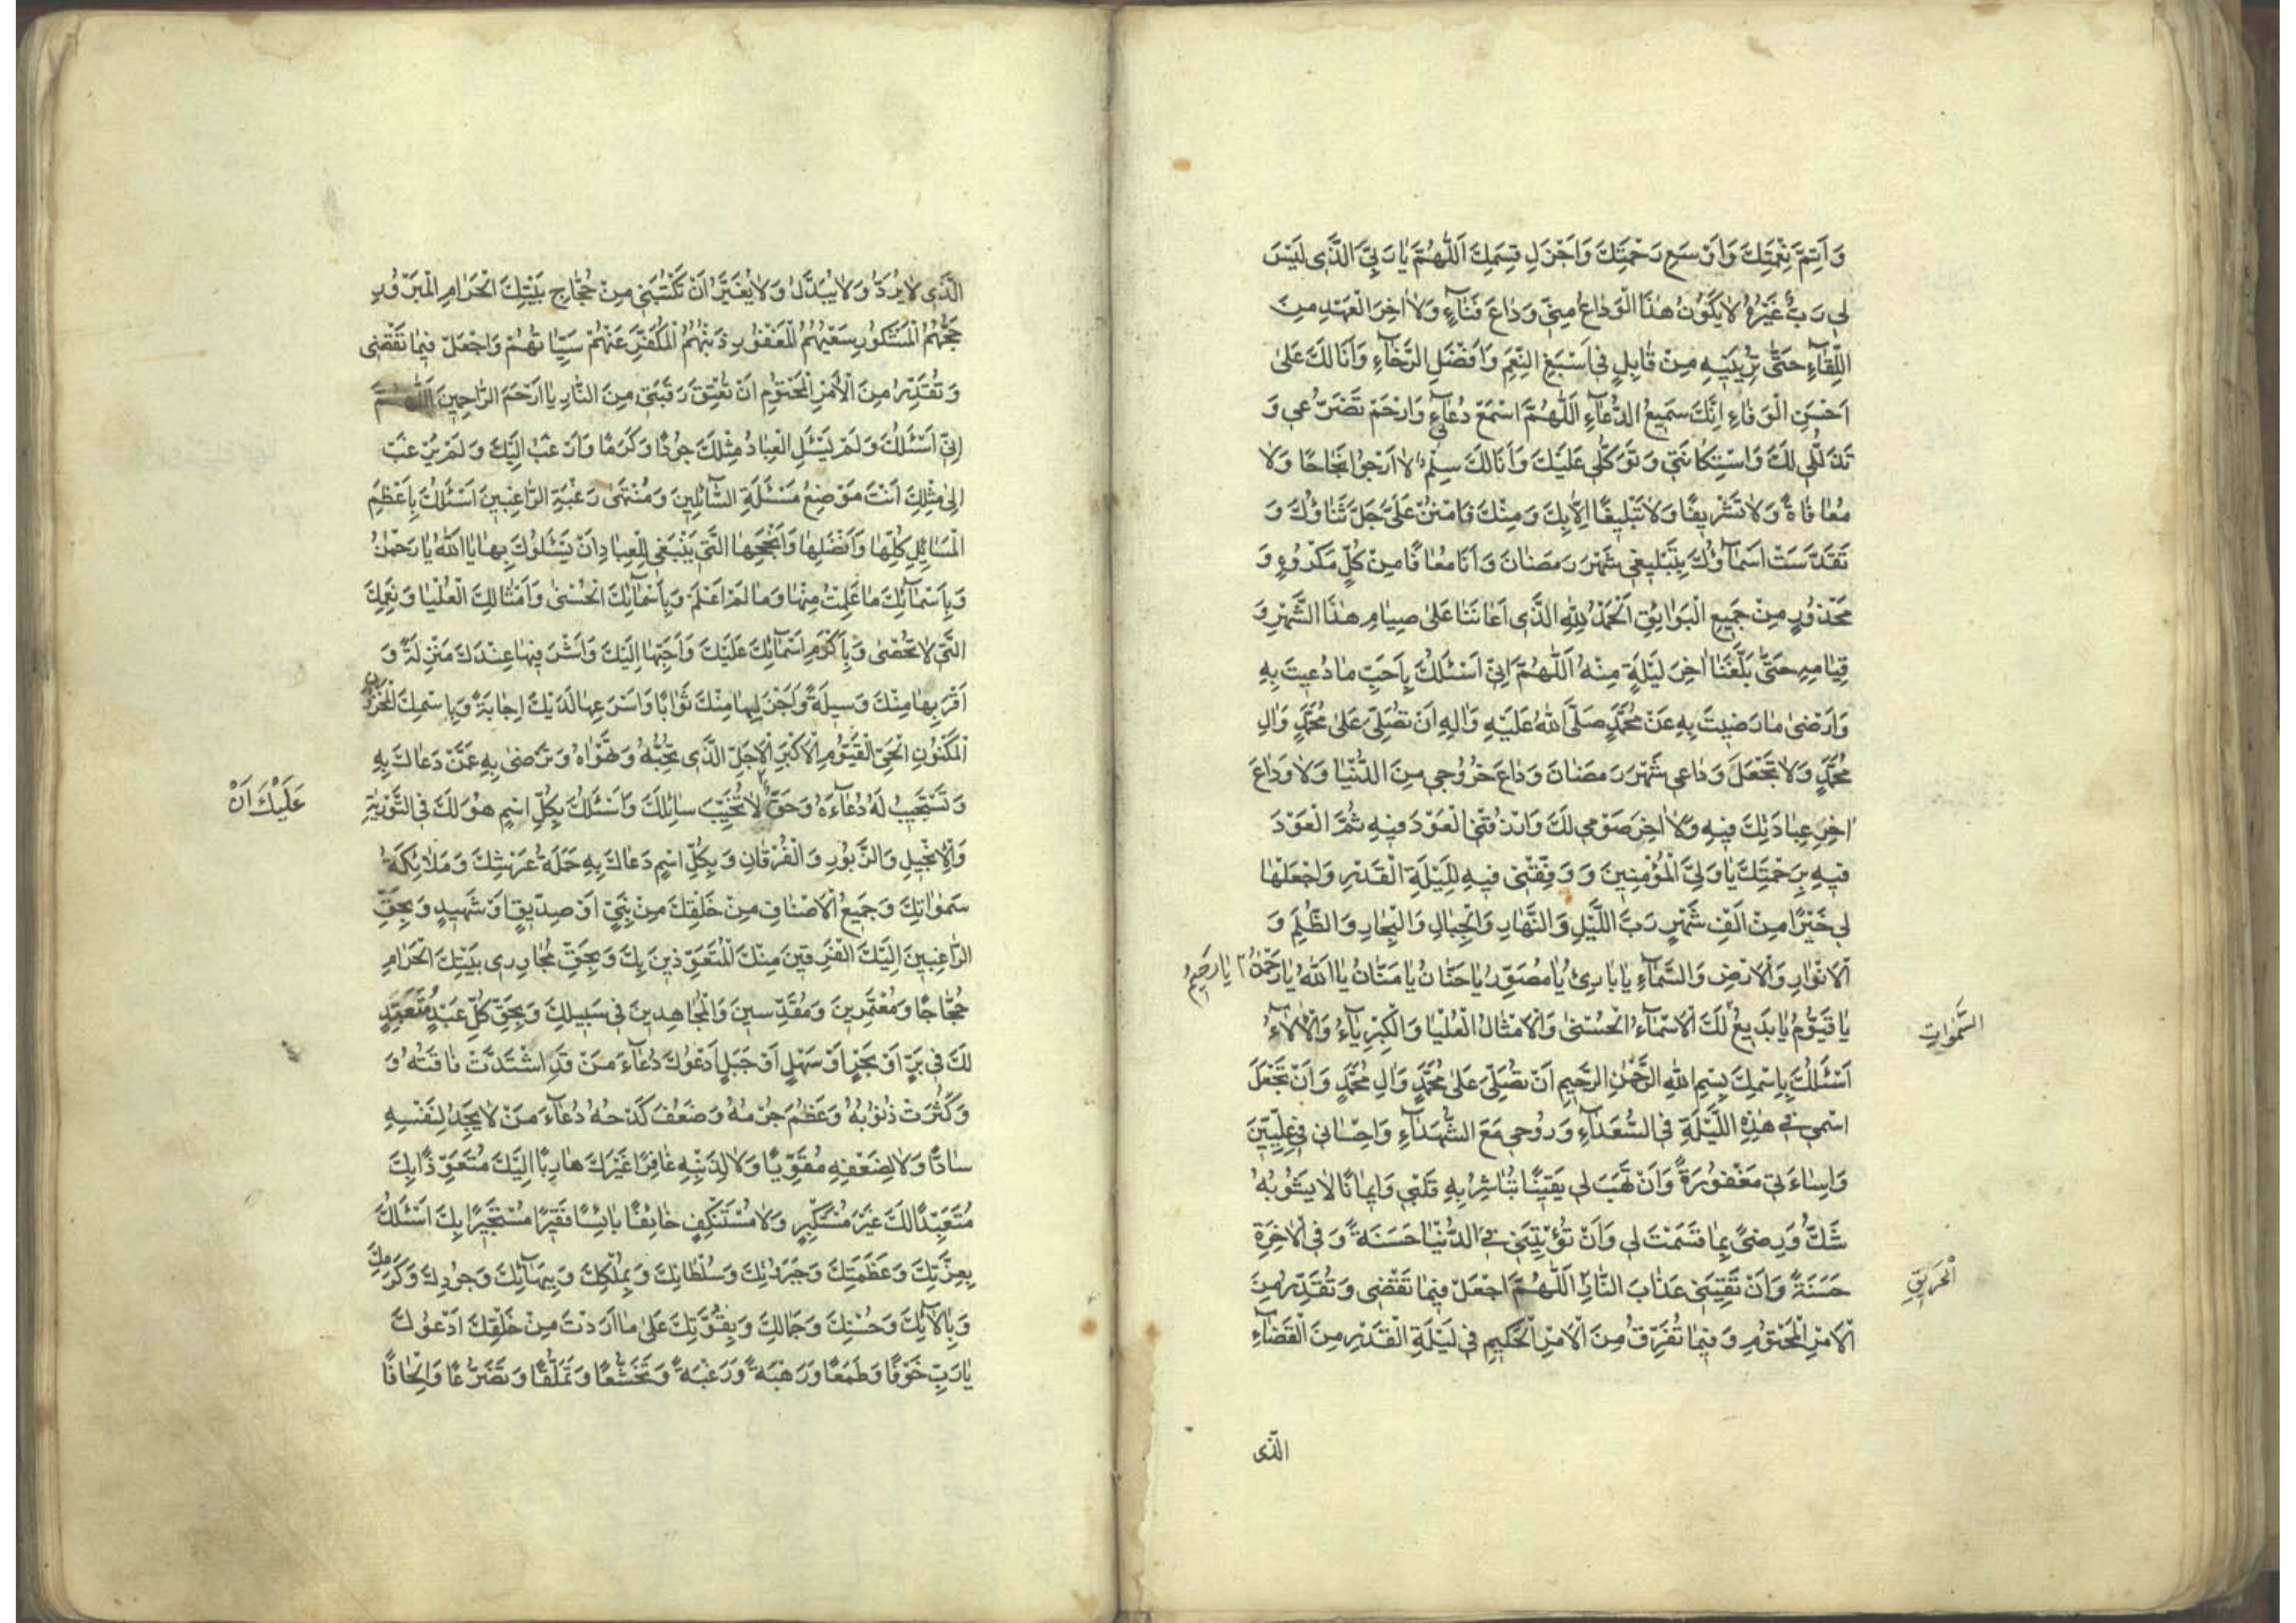 وَاَتِمَّ نِعْمَتِكَ وَاَوْسَعِ رَحْمَتِكَ وَاَجْزَلِ قِسَمِكَ اَللّٰهُمَّ يٰا رَبِّيَ الَّذٖى لَيْسَ
لٖى رَبٌّ غَيْرُهُ لٰا يَكُونُ هٰذَا الْوَدٰاعُ مِنّٖى وَدٰاعَ فَنٰاۤءٍ وَلٰا اٰخِرَ الْعَهْدِ مِنَ
اللِّقٰاۤءِ حَتّٰى تُرِيَنٖيهِ مِنْ قٰابِلٍ فٖى اَسْبَغِ النِّعَمِ وَاَفْضَلِ الرَّخٰاۤءِ وَاَنَا لَكَ عَلٰى
اَحْسَنِ الْوَفٰاءِ اِنَّكَ سَمٖيعُ الدُّعٰاۤءِ اَللّٰهُمَّ اسْمَعْ دُعٰاۤئٖى وَارْحَمْ تَضَرُّعٖى وَ
تَذَلُّلٖى لَكَ وَاسْتِكٰانَتٖى وَتَوَكُّلٖى عَلَيْكَ وَاَنَا لَكَ سِلْمٌ لٰا اَرْجُوا نَجٰاحًا وَلٰا
مُعٰافٰاةً وَلٰا تَشْرٖيفًا وَلٰا تَبْلٖيغًا اِلّٰا بِكَ وَمِنْكَ فَامْنُنْ عَلَيَّ جَلَّ ثَنٰاؤُكَ وَ
تَقَدَّسَتْ اَسْمٰاۤؤُكَ بِتَبْلٖيغٖى شَهْرَ رَمَضٰانَ وَاَنَا مُعٰافًا مِنْ كُلِّ مَكْرُوهٍ وَ
مَحْذُورٍ مِنْ جَمٖيعِ الْبَوٰايِقِ اَلْحَمْدُ لِلّٰهِ الَّذٖى اَعٰانَنٰا عَلٰى صِيٰامِ هٰذَا الشَّهْرِ وَ
قِيٰامِهٖ حَتّٰى بَلَّغَنٰا اٰخِرَ لَيْلَةٍ مِنْهُ اَللّٰهُمَّ اِنّٖى اَسْئَلُكَ بِاَحَبِّ مٰا دُعٖيتَ بِهِ
وَاَرْضٰى مٰا رَضٖيتَ بِهِ عَنْ مُحَمَّدٍ صَلَّى اللّٰهُ عَلَيْهِ وَاٰلِهِ اَنْ تُصَلِّيَ عَلٰى مُحَمَّدٍ وَاٰلِ
مُحَمَّدٍ وَلٰا تَجْعَلَ وَدٰاعٖى شَهْرَ رَمَضٰانَ وَدٰاعَ خُرُوجٖى مِنَ الدُّنْيٰا وَلٰا وَدٰاعَ
اٰخِرِ عِبٰادَتِكَ فٖيهِ وَلٰا اٰخِرَ صَوْمٖى لَكَ وَارْزُقْنِى الْعَوْدَ فٖيهِ ثُمَّ الْعَوْدَ
فٖيهِ بِرَحْمَتِكَ يٰا وَلِيَّ الْمُؤْمِنٖينَ وَوَفِّقْنٖى فٖيهِ لِلَيْلَةِ الْقَدْرِ وَاجْعَلْهٰا
لٖى خَيْرًا مِنْ اَلْفِ شَهْرٍ رَبَّ اللَّيْلِ وَالنَّهٰارِ وَالْجِبٰالِ وَالْبِحٰارِ وَالظُّلَمِ وَ
الْاَنْوٰارِ وَالْاَرْضِ وَالسَّمٰاۤءِ يٰا بٰارِئُ يٰا مُصَوِّرُ يٰا حَنّٰانُ يٰا مَنّٰانُ يٰا اَللّٰهُ يٰا رَحْمٰنُ يٰا رَحٖيمُ
يٰا قَيُّومُ يٰا بَدٖيعُ لَكَ الْاَسْمٰاۤءُ الْحُسْنٰى وَالْاَمْثٰالُ الْعُلْيٰا وَالْكِبْرِيٰاۤءُ وَالْاٰلٰاۤءُ
السَّمٰوٰاتِ
اَسْئَلُكَ بِاسْمِكَ بِسْمِ اللّٰهِ الرَّحْمٰنِ الرَّحٖيمِ اَنْ تُصَلِّيَ عَلٰى مُحَمَّدٍ وَاٰلِ مُحَمَّدٍ وَاَنْ تَجْعَلَ
اسْمٖى فٖى هٰذِهِ اللَّيْلَةِ فِى السُّعَدٰاۤءِ وَرُوحٖى مَعَ الشُّهَدٰاۤءِ وَاِحْسٰانٖى فٖى عِلِّيّٖينَ
وَاِسٰاءَتٖى مَغْفُورَةً وَاَنْ تَهَبَ لٖى يَقٖينًا تُبٰاشِرُ بِهِ قَلْبٖى وَاٖيمٰانًا لٰا يَشُوبُهُ
شَكٌّ وَرِضًى بِمٰا قَسَمْتَ لٖى وَاَنْ تُؤْتِيَنٖى فِى الدُّنْيٰا حَسَنَةً وَفِى الْاٰخِرَةِ
حَسَنَةً وَاَنْ تَقِيَنٖى عَذٰابَ النّٰارِ اَللّٰهُمَّ اجْعَلْ فٖيمٰا تَقْضٖى وَتُقَدِّرُ مِنَ
الْحَرٖيقِ
الْاَمْرِ الْمَحْتُومِ وَفٖيمٰا تُفَرِّقُ مِنَ الْاَمْرِ الْحَكٖيمِ فٖى لَيْلَةِ الْقَدْرِ مِنَ الْقَضٰاۤءِ
الَّذى
الَّذٖى لٰا يُرَدُّ وَلٰا يُبَدَّلُ وَلٰا يُغَيَّرُ اَنْ تَكْتُبَنٖى مِنْ حُجّٰاجِ بَيْتِكَ الْحَرٰامِ الْمَبْرُورِ
حَجُّهُمُ الْمَشْكُورِ سَعْيُهُمُ الْمَغْفُورِ ذَنْبُهُمُ الْمُكَفَّرِ عَنْهُمْ سَيِّئٰاتُهُمْ وَاجْعَلْ فٖيمٰا تَقْضٖى
وَتُقَدِّرُ مِنَ الْاَمْرِ الْمَحْتُومِ اَنْ تُعْتِقَ رَقَبَتٖى مِنَ النّٰارِ يٰا اَرْحَمَ الرّٰاحِمٖينَ اَللّٰهُمَّ
اِنّٖى اَسْئَلُكَ وَلَمْ يَسْئَلِ الْعِبٰادُ مِثْلَكَ جُودًا وَكَرَمًا وَاَرْغَبُ اِلَيْكَ وَلَمْ يُرْغَبْ
اِلٰى مِثْلِكَ اَنْتَ مَوْضِعُ مَسْئَلَةِ السّٰاۤئِلٖينَ وَمُنْتَهٰى رَغْبَةِ الرّٰاغِبٖينَ اَسْئَلُكَ بِاَعْظَمِ
الْمَسٰائِلِ كُلِّهٰا وَاَفْضَلِهٰا وَاَنْجَحِهَا الَّتٖى يَنْبَغٖى لِلْعِبٰادِ اَنْ يَسْئَلُوكَ بِهٰا يٰا اَللّٰهُ يٰا رَحْمٰنُ
وَبِاَسْمٰاۤئِكَ مٰا عَلِمْتُ مِنْهٰا وَمٰا لَمْ اَعْلَمْ وَبِاَسْمٰاۤئِكَ الْحُسْنٰى وَاَمْثٰالِكَ الْعُلْيٰا وَنِعَمِكَ
الَّتٖى لٰا تُحْصٰى وَبِاَكْرَمِ اَسْمٰاۤئِكَ عَلَيْكَ وَاَحَبِّهٰا اِلَيْكَ وَاَشْرَفِهٰا عِنْدَكَ مَنْزِلَةً وَ
اَقْرَبِهٰا مِنْكَ وَسٖيلَةً وَاَجْزَلِهٰا مِنْكَ ثَوٰابًا وَاَسْرَعِهٰا لَدَيْكَ اِجٰابَةً وَبِاسْمِكَ الْمَخْزُونِ
الْمَكْنُونِ الْحَيِّ الْقَيُّومِ الْاَكْبَرِ الْاَجَلِّ الَّذٖى تُحِبُّهُ وَتَهْوٰاهُ وَتَرْضٰى بِهِ عَمَّنْ دَعٰاكَ بِهِ
وَتَسْتَجٖيبُ لَهُ دُعٰاۤءَهُ وَحَقٌّ لٰا تُخَيِّبَ سٰائِلَكَ وَاَسْئَلُكَ بِكُلِّ اسْمٍ هُوَ لَكَ فِى التَّوْرٰيةِ
عَلَيْكَ اَنْ
وَالْاِنْجٖيلِ وَالزَّبُورِ وَالْفُرْقٰانِ وَبِكُلِّ اسْمٍ دَعٰاكَ بِهِ حَمَلَةُ عَرْشِكَ وَمَلٰائِكَةُ
سَمٰوٰاتِكَ وَجَمٖيعُ الْاَصْنٰافِ مِنْ خَلْقِكَ مِنْ نَبِيٍّ اَوْ صِدّٖيقٍ اَوْ شَهٖيدٍ وَبِحَقِّ
الرّٰاغِبٖينَ اِلَيْكَ الْفَرِقٖينَ مِنْكَ الْمُتَعَوِّذٖينَ بِكَ وَبِحَقِّ مُجٰاوِرٖى بَيْتِكَ الْحَرٰامِ
حُجّٰاجًا وَمُعْتَمِرٖينَ وَمُقَدِّسٖينَ وَالْمُجٰاهِدٖينَ فٖى سَبٖيلِكَ وَبِحَقِّ كُلِّ عَبْدٍ مُتَعَبِّدٍ
لَكَ فٖى بَرٍّ اَوْ بَحْرٍ اَوْ سَهْلٍ اَوْ جَبَلٍ اَدْعُوكَ دُعٰاۤءَ مَنْ قَدِ اشْتَدَّتْ فٰاقَتُهُ وَ
وَكَثُرَتْ ذُنُوبُهُ وَعَظُمَ جُرْمُهُ وَضَعُفَ كَدْحُهُ دُعٰاۤءَ مَنْ لٰا يَجِدُ لِنَفْسِهِ
سٰادًّا وَلٰا لِضَعْفِهِ مُقَوِّيًا وَلٰا لِذَنْبِهِ غٰافِرًا غَيْرَكَ هٰارِبًا اِلَيْكَ مُتَعَوِّذًا بِكَ
مُتَعَبِّدًا لَكَ غَيْرَ مُسْتَكْبِرٍ وَلٰا مُسْتَنْكِفٍ خٰائِفًا بٰائِسًا فَقٖيرًا مُسْتَجٖيرًا بِكَ اَسْئَلُكَ
بِعِزَّتِكَ وَعَظَمَتِكَ وَجَبَرُوتِكَ وَسُلْطٰانِكَ وَبِمُلْكِكَ وَبِبَهٰاۤئِكَ وَجُودِكَ وَكَرَمِكَ
وَبِاٰلٰاۤئِكَ وَحُسْنِكَ وَجَمٰالِكَ وَبِقُوَّتِكَ عَلٰى مٰا اَرَدْتَ مِنْ خَلْقِكَ اَدْعُوكَ
يٰا رَبِّ خَوْفًا وَطَمَعًا وَرَهْبَةً وَرَغْبَةً وَتَخَشُّعًا وَتَمَلُّقًا وَتَضَرُّعًا وَاِلْحٰافًا